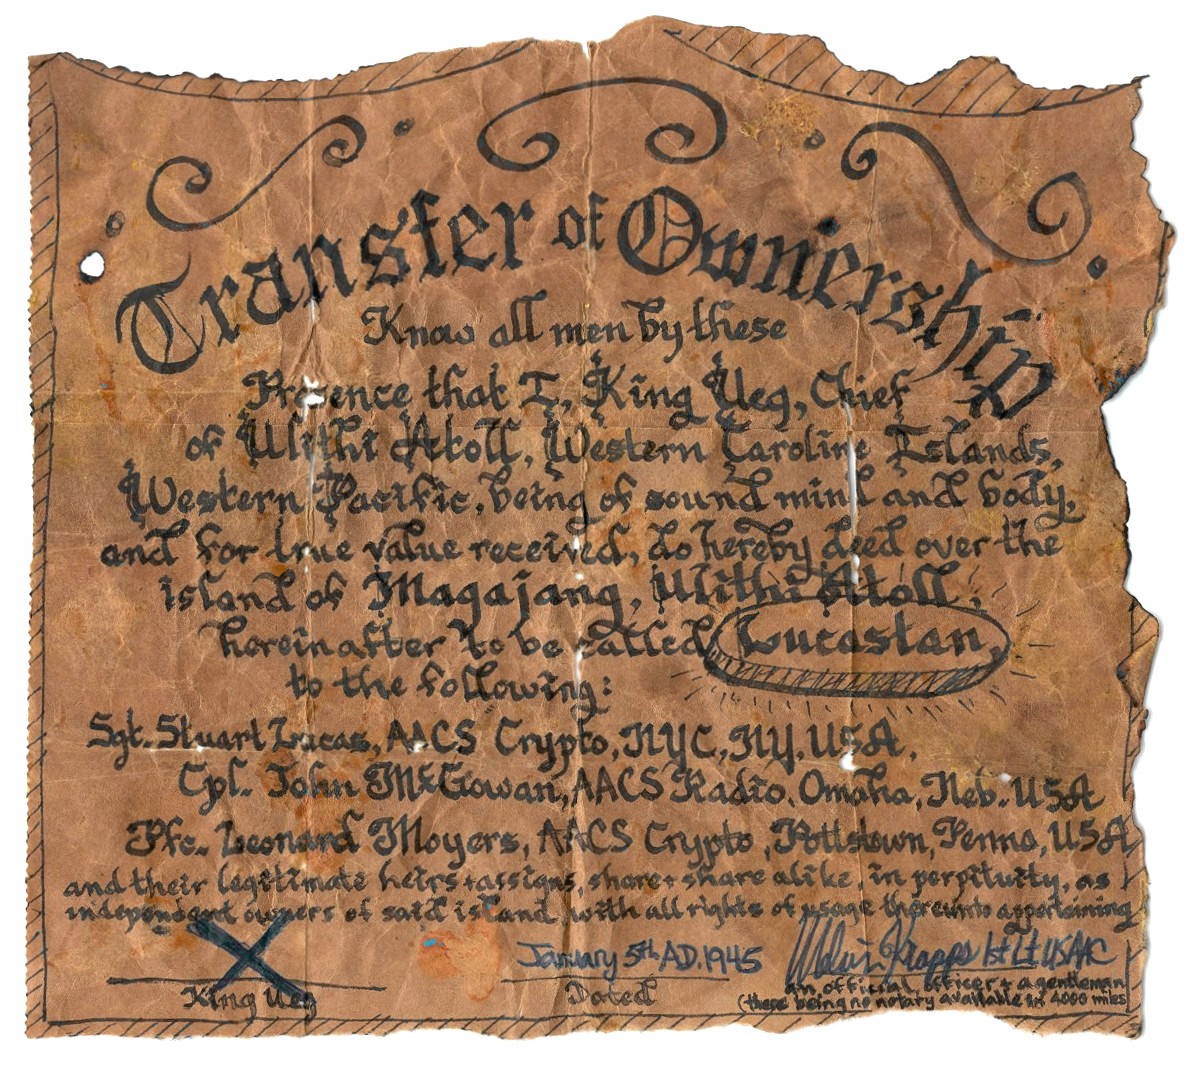 Transfer of Ownership
Know all men by these
Presence that I, King Ueg, Chief
of Ulithi Atoll, Western Caroline Islands,
Western Pacific, being of sound mind and body,
and for true value received, do hereby deed over the
island of Magajang, Ulithi Atoll,
hereinafter to be called Lucastan,
to the following:
Sgt. Stuart Lucas, AACS Crypto, NYC, NY, USA,
Cpl. John McGowan, AACS Radio, Omaha, Neb. USA
Pfc. Leonard Moyers, AACS Crypto, Pottstown, Penna, USA
and their legitimate heirs + assigns, share + share alike, in perpituity, as
independant owners of said island, with all rights of usage thereunto appertaining
X
January 5th AD. 1945
Krapps 1st Lt USAAC
King Ueg
Dated
an official officer + a gentleman
(there being no notary available in 4000 miles